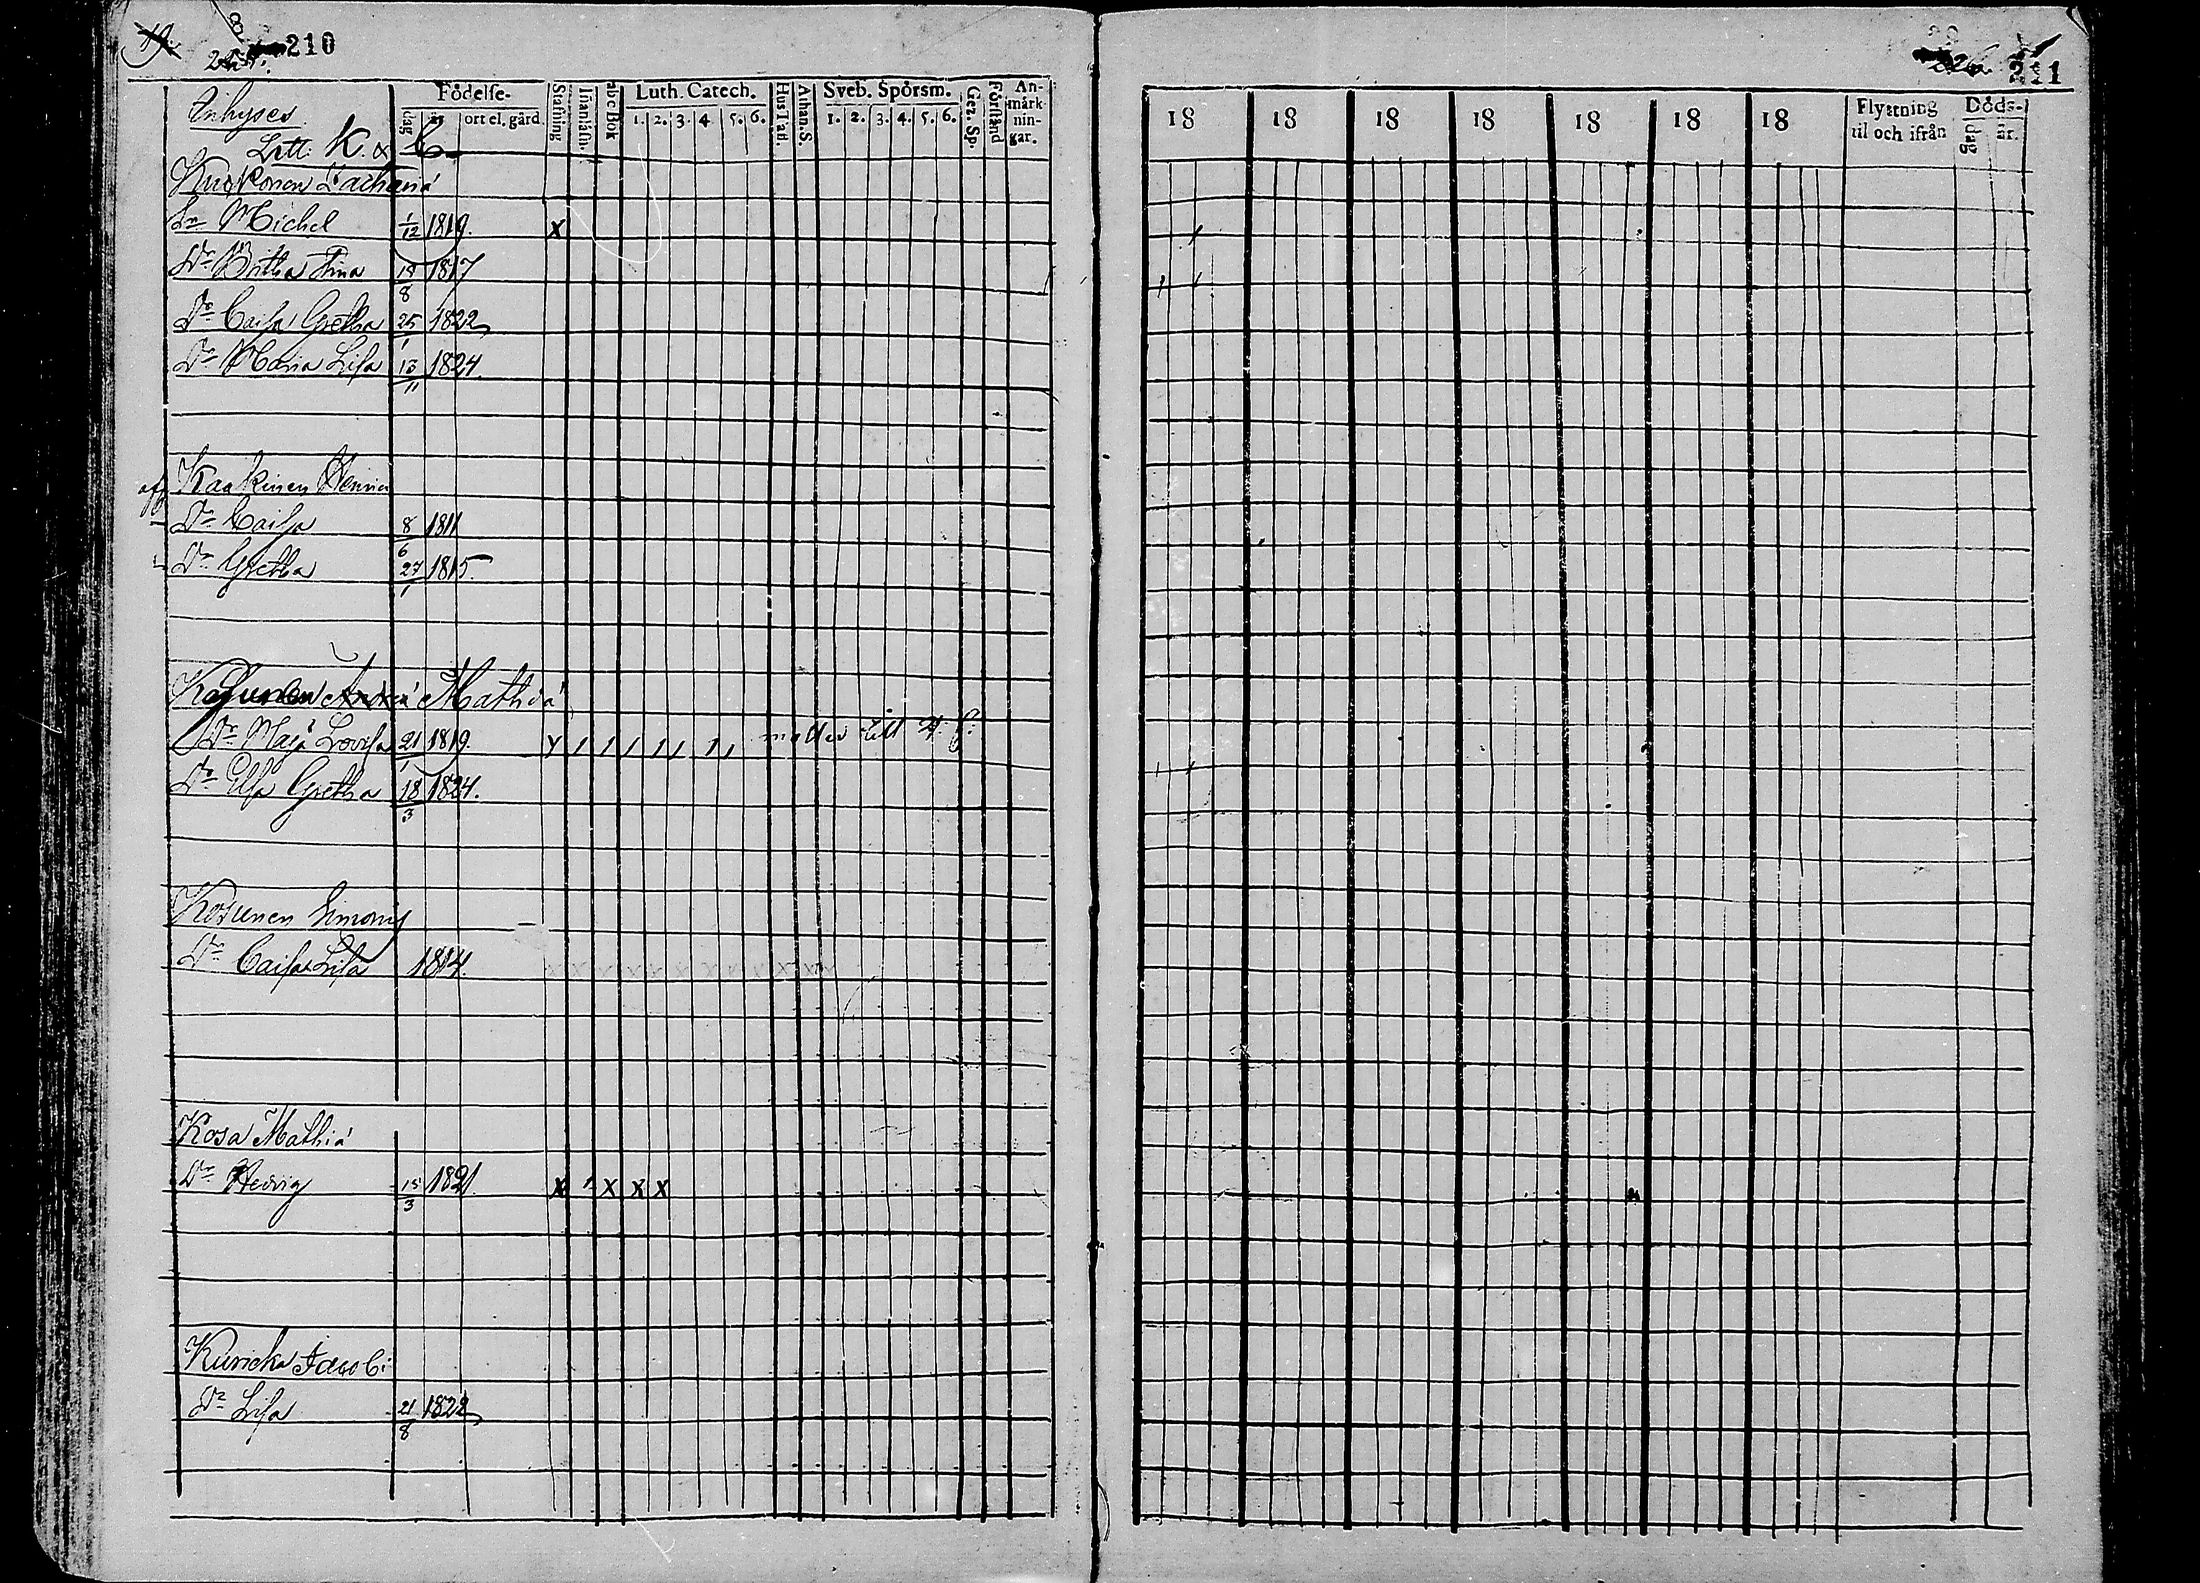 19.
210
Födelse-
dag
år
ort el. gård
Stafning
Inanläsn.
abc Bok
Luth. Catech.
1. 2. 3. 4 5. 6.
Hus Tafl.
Athan. S.
Sveb. Spörsm.
1. 2. 3. 4. 5. 6.
Gez. Sp.
Förstånd
An-
märk-
nin-
gar.
Inhyses
Litt: K. & C.
Kuokonen Zachariæ
Sn Michel 1/12 1819. x
Dr Britha Stina 18/8 1817
Dr Caisa Gretha 25/1 1822
Dr Maria Lisa 13/11 1824
Kaakinen Henric
Dr Caisa 8/6 1811
Dr Gretha 27/1 1815.
Mathiæ
Dr Maja Lovisa 21/1 1819.
Dr Elsa Gretha 18/3 1824.
Kosunen Simonis
Dr Caisa Lisa 1814.
Kosa Mathiæ
Dr Hedvig 15/3 1821 x x x x
Kuricka Jacobi
Dr Lisa 21/8 1822
211
18 18 18 18 18 18 18
Flyttning
til och ifrån
Döds-
dag
år.